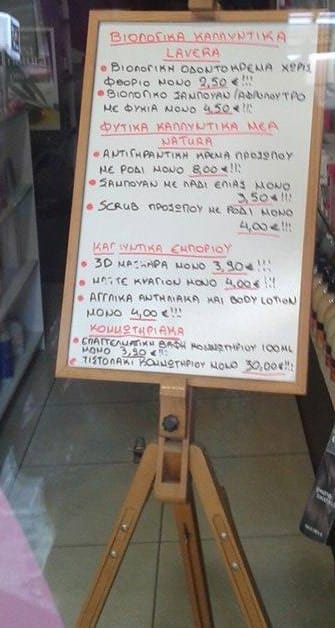 ΒΙΟΛΟΓΙΚΑ ΚΑΛΛΥΝΤΙΚΑ
LAVERA
• ΒΙΟΛΟΓΙΚΗ ΟΔΟΝΤΟΚΡΕΜΑ ΧΩΡΙΣ
ΦΘΟΡΙΟ ΜΟΝΟ 2,50 €!!!
• ΒΙΟΛΟΓΙΚΟ ΣΑΜΠΟΥΑΝ/ΑΦΡΟΛΟΥΤΡΟ
ΜΕ ΦΥΚΙΑ ΜΟΝΟ 4,50 €!!!
ΦΥΤΙΚΑ ΚΑΛΛΥΝΤΙΚΑ ΜΕΑ
NATURA
• ΑΝΤΙΓΗΡΑΝΤΙΚΗ ΚΡΕΜΑ ΠΡΟΣΩΠΟΥ
ΜΕ ΡΟΔΙ ΜΟΝΟ 8,00 €!!!
• ΣΑΜΠΟΥΑΝ ΜΕ ΛΑΔΙ ΕΛΙΑΣ ΜΟΝΟ
3,50 €!!!
• SCRUB ΠΡΟΣΩΠΟΥ ΜΕ ΡΟΔΙ ΜΟΝΟ
4,00 €!!!
ΚΑΛΛΥΝΤΙΚΑ ΕΜΠΟΡΙΟΥ
• 3D ΜΑΣΚΑΡΑ ΜΟΝΟ 3,90 €!!!
• ΚΡΑΓΙΟΝ ΜΟΝΟ 4,00 €!!!
• ΑΝΤΗΛΙΑΚΑ ΚΑΙ BODY LOTION
ΜΟΝΟ 4,00 €!!!
ΚΟΜΜΩΤΗΡΙΑΚΑ
• ΕΠΑΓΓΕΛΜΑΤΙΚΗ ΒΑΦΗ ΚΟΜΜΩΤΗΡΙΟΥ 100ML
ΜΟΝΟ 3,90 €!!!
• ΠΙΣΤΟΛΑΚΙ ΚΟΜΜΩΤΗΡΙΟΥ ΜΟΝΟ 30,00€!!!